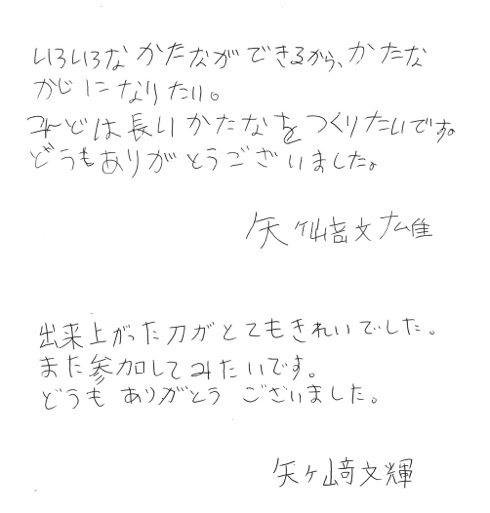 いろいろな かたなが できるから、かたな
かじに なりたい。
こんどは 長い かたなを つくりたいです。
どうもありがとうございました。
矢ケ﨑文雄
出来上がった刀がとてもきれいでした。
また参加してみたいです。
どうも ありがとう ございました。
矢ケ﨑文輝